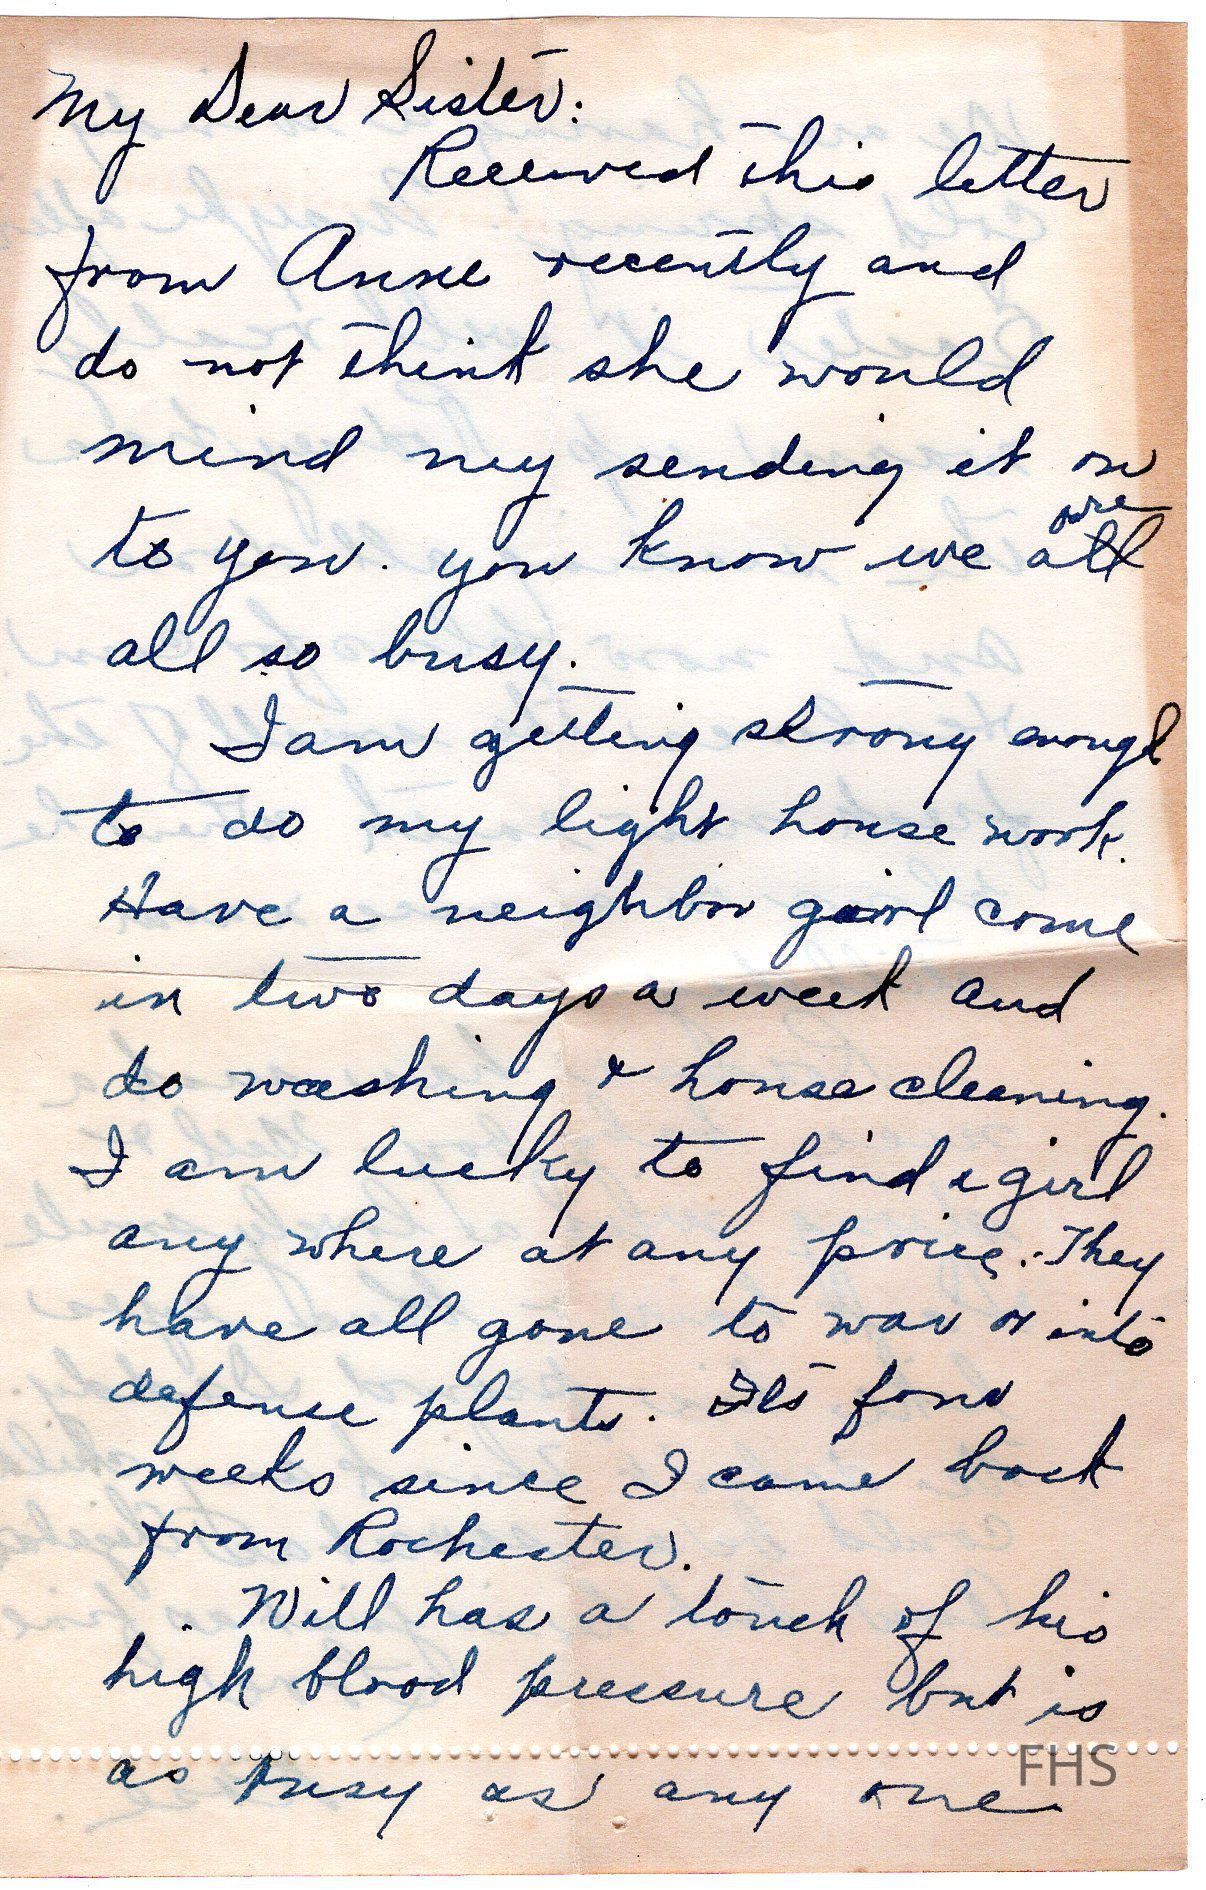 My Dear Sister:
Received this letter
from Anne recently and
do not think she would
mind my sending it on
to you. you know we are
all so busy.
I am getting strong enough
to do my light house work.
Have a neighbor girl come
in two days a week and
do washing & house cleaning.
I am lucky to find a girl
any where at any price. They
have all gone to war or into
defense plants. Its four
weeks since I came back
from Rochester.
Will has a touch of his
high blood pressure but is
as busy as any one
FHS